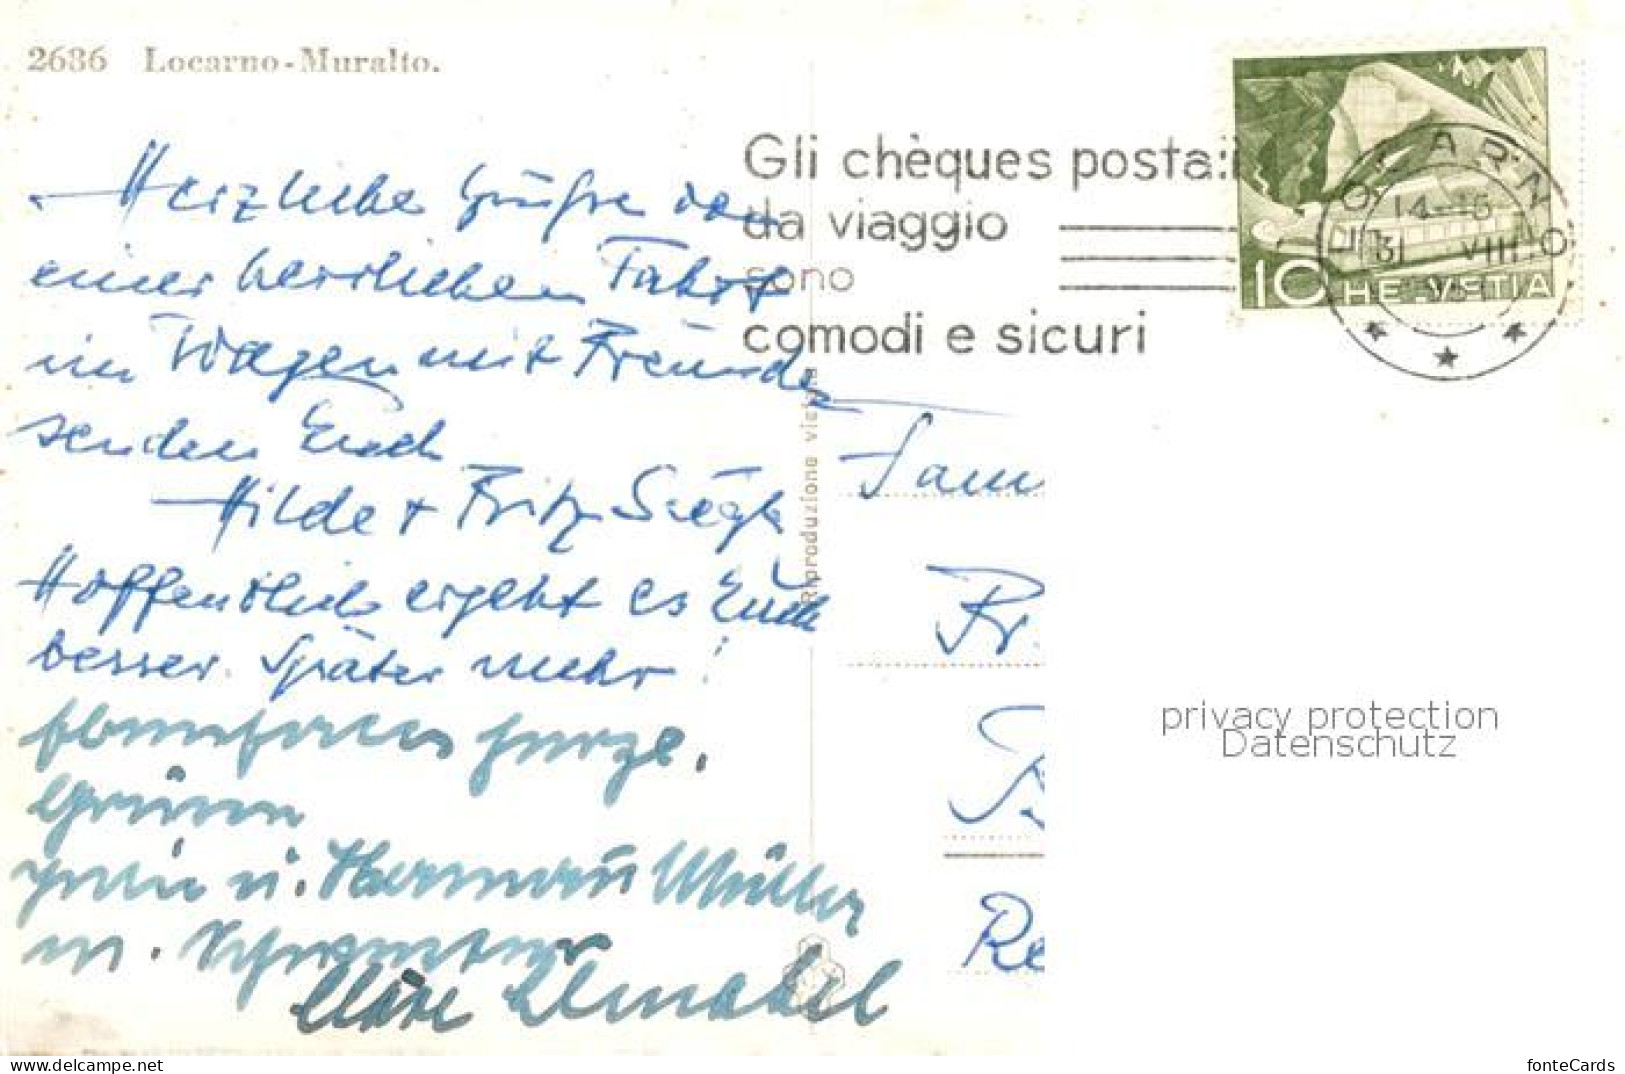 2686 Locarno-Muralto.
Herzliche Grüße von
einer herrlichen Fahrt
im Wagen mit Freunden
senden Euch
Hilde + Fritz
Hoffentlich ergeht es Euch
besser. Später mehr!
Ebenfalls herzl.
Grüsse
u. Hermann Müller
m. Schwester
Gli chèques posta:i
da viaggio
sono
comodi e sicuri
LOCARNO
14-15
31 VIII
10 HELVETIA
Riproduzione vietata
Fam
Fr.
Re
privacy protection
Datenschutz
delcampe.net
fonteCards